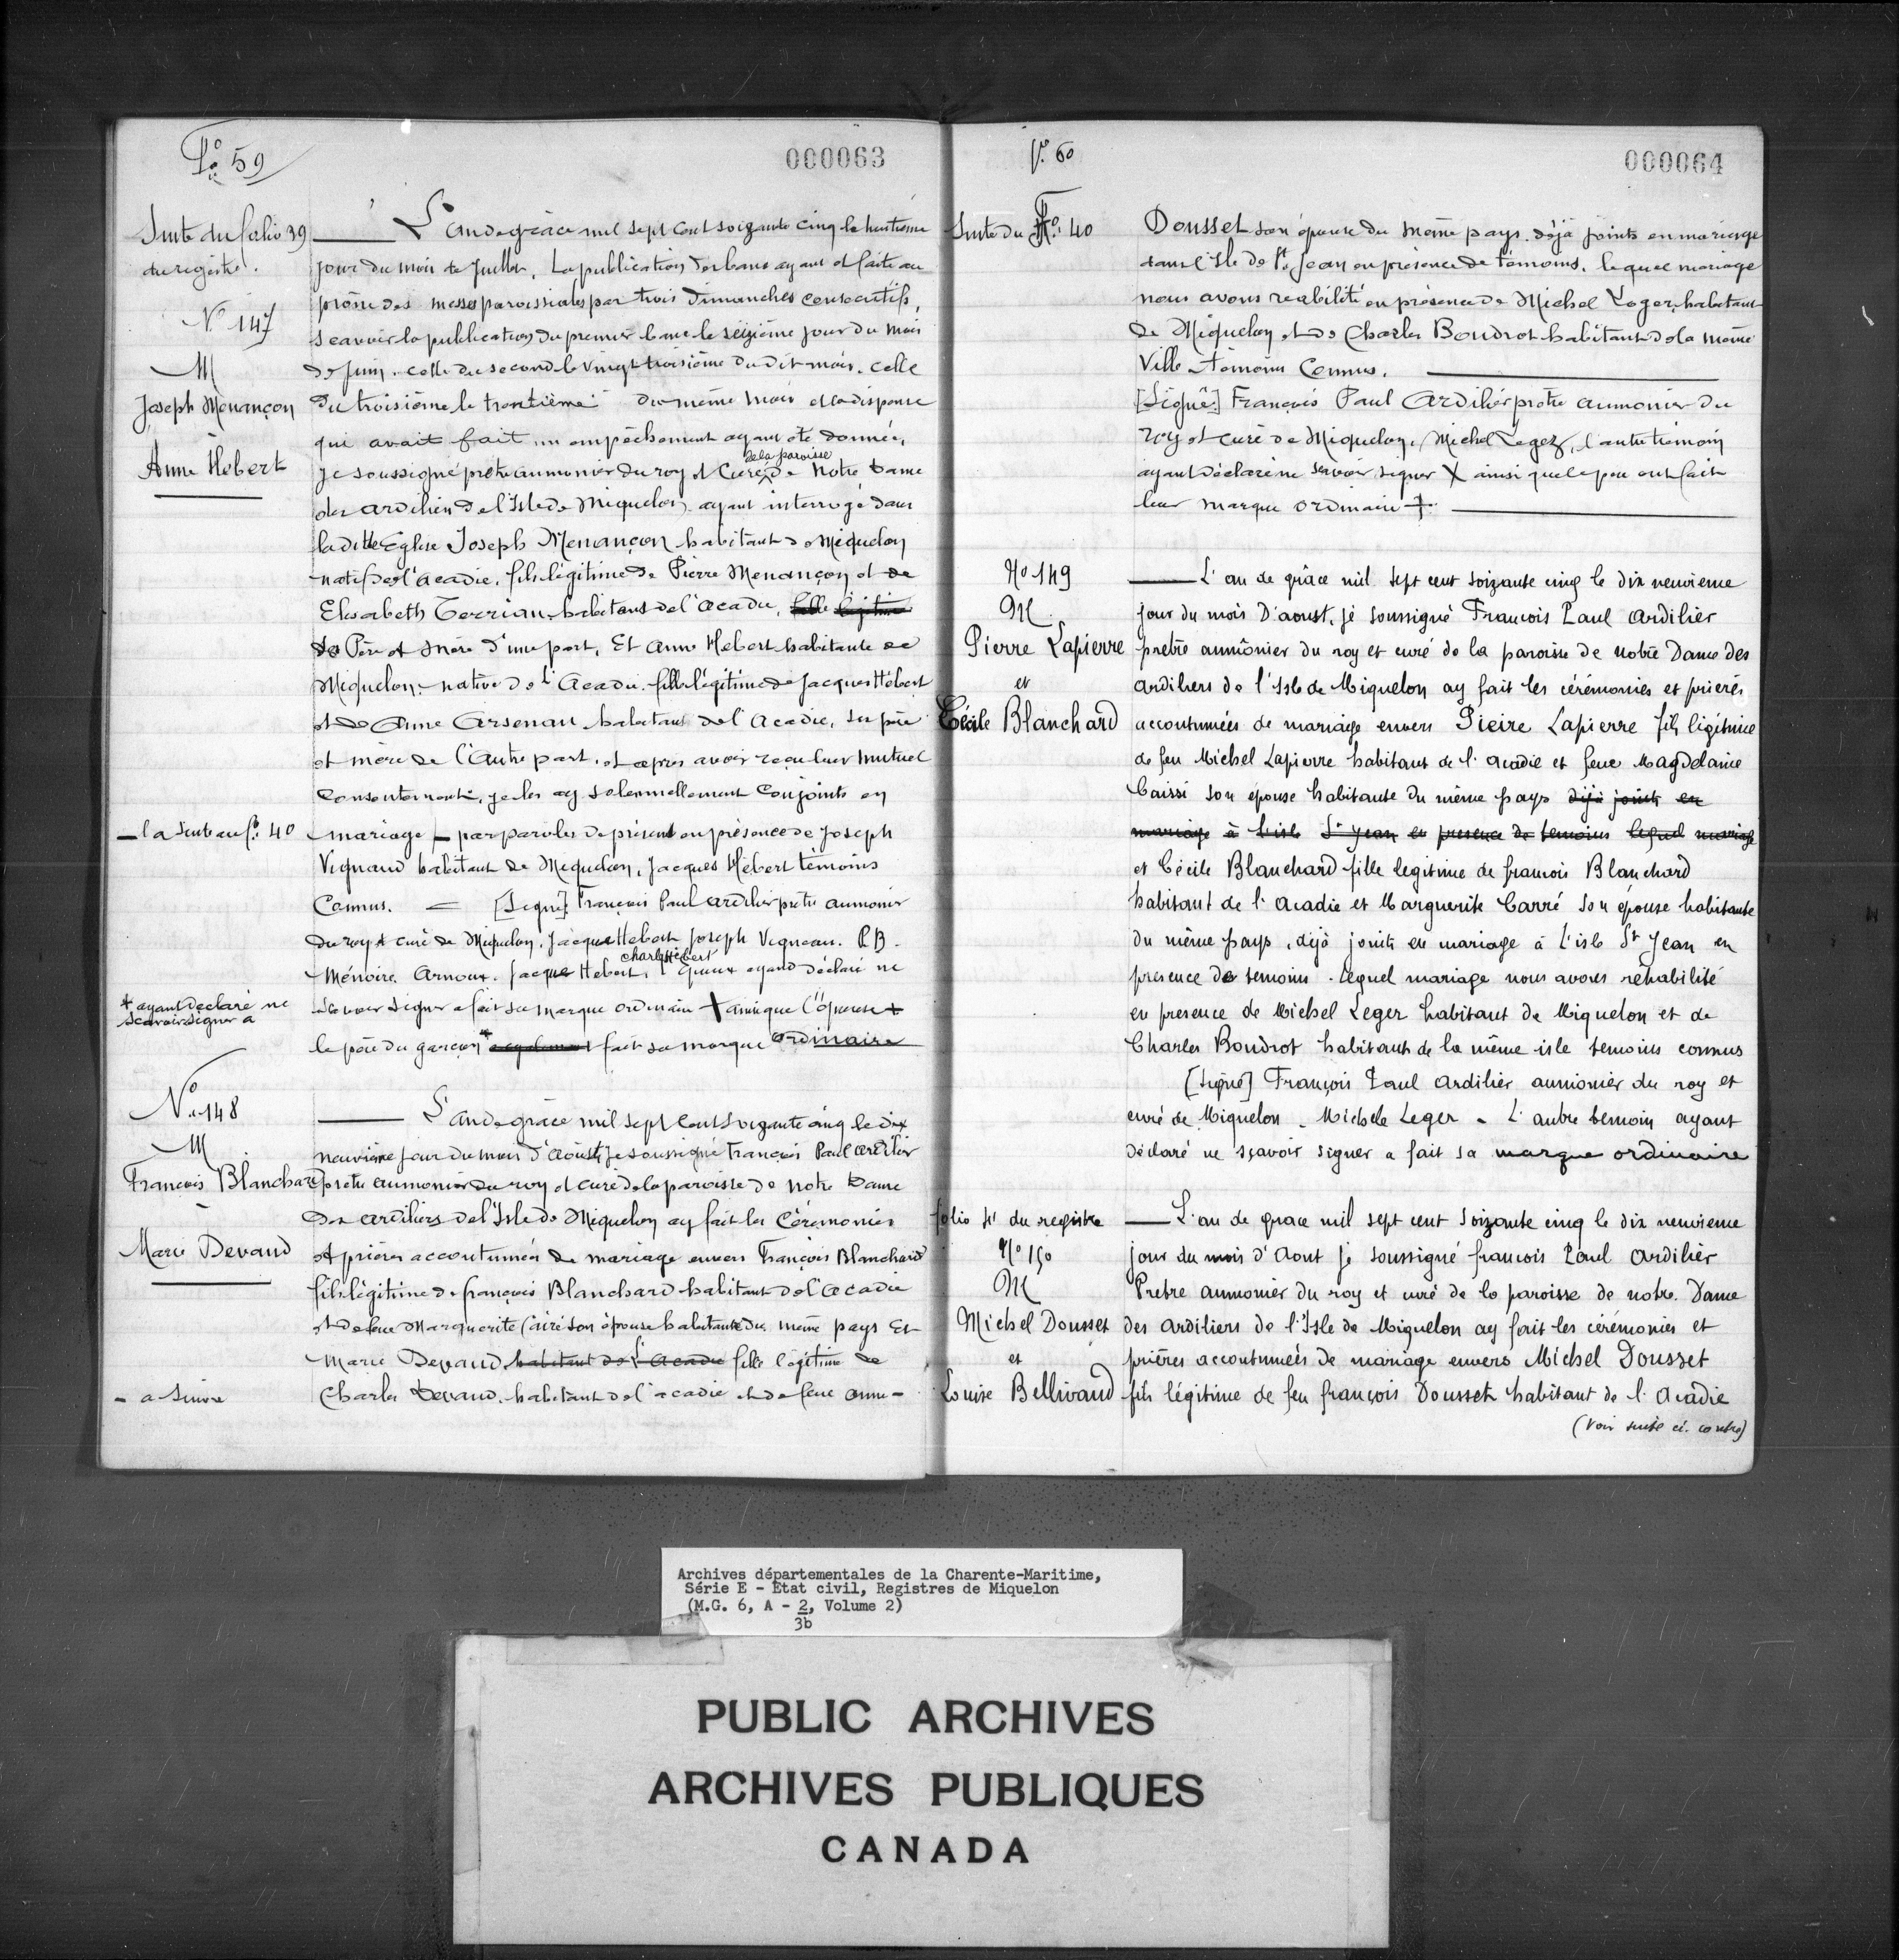 fo 59
000063
Suite du folio 39
du registre.
L'an de grâce mil sept cent soizante cinq le huitième
jour du mois de Juillet, La publication des bans ayant été faite au
prône des messes paroissiales par trois Dimanches consecutifs,
Scavoir la publication du premier banc le seizième jour du mois
de Juin, celle du second le vingt troisième du dit mois, celle
du troisième le trentième du même mois et la dispense
qui avait fait un empêchement ayant été donnée,
de la paroisse
je soussigné prêtre aumonier du roy et Curé de Notre Dame
des ardiliers de l'Isle de Miquelon, ayant interrogé dans
la ditte Eglise Joseph Menançon habitant de Miquelon
natif de l'acadie, fils légitime de Pierre Menançon et de
Elisabeth Terriau habitans de l'acadie,
Ses Père et Mère d'une part, Et Anne Hebert habitante de
Miquelon, native de l'Acadie fille légitime de Jacques Hébert
et de Anne Arsenau habitans de l'Acadie, ses père
et mère de l'autre part, et après avoir reçu leur mutuel
Consentement, je les ay solennellement Conjoints en
mariage — par paroles de présent en présence de Joseph
Vignaud habitant de Miquelon, Jacques Hébert témoins
Connus. = [Signé] François Paul ardilier prêtre aumonier
du roy et curé de Miquelon, Jacque Hebert Joseph Vigneau. P.B.
Charles Hébert
Ménoire. Arnoux. Jacque Hebert, l'Epoux ayand déclaré ne
Scavoir signer a fait sa marque ordinaire + ainsi que l'épouse +
le père du garçon * fait sa marque ordinaire
No 147
M
Joseph Menançon
Anne Hebert
— la suite au fo. 40
* ayant declaré ne
scavoir signer a
No 148
M
François Blanchard
Marie Devaud
L'an de grâce mil sept cent soizante cinq le dix
neuvième jour du mois d'Aoûst, je soussigné François Paul ardilier
prêtre aumonier du roy et curé de la paroisse de Notre Dame
des ardiliers de l'Isle de Miquelon ay fait les Cérémonies
et prières accoutumées de mariage envers François Blanchard
fils légitime de françois Blanchard habitant de l'acadie
et de feue Marguerite Cairé son épouse habitante du même pays Et
Marie Devaud habitant de l'Acadie fille légitime de
Charles Devaud, habitant de l'acadie et de feue Anne -
- a suivre
fo. 60
000064
Suite du fo. 40
Dousset son épouse du même pays déjà joints en mariage
dans l'isle de St. Jean en présence de témoins, lequel mariage
nous avons reabilité en présence de Michel Leger, habitant
de Miquelon et de Charles Boudrot habitant de la même
Ville témoins Connus.
[Signé] François Paul Ardilier prêtre aumonier du
roy et curé de Miquelon, Michel Leger, l'autre témoin
ayant déclaré ne scavoir signer X ainsi que le peu ont fait
leur marque ordinaire +.
No 149
M
Pierre Lapierre
et
Cécile Blanchard
L'an de grâce mil sept cent soizante cinq le dix neuvieme
jour du mois D'aoust, je soussigné François Paul Ardilier
prêtre aumônier du roy et curé de la paroisse de notre Dame des
Ardiliers de l'Isle de Miquelon ay fait les cérémonies et prieres
accoutumées de mariage envers Pieire Lapierre fils légitime
de feu Michel Lapierre habitant de l'acadie et feue Magdelaine
Caissi son épouse habitante du même pays déjà joints en
mariage à l'isle St Jean en presence de temoins lequel mariage
et Cécile Blanchard fille legitime de francois Blanchard
habitant de l'acadie et Marguerite Carré son épouse habitante
du même pays, déjà joints en mariage à L'isle St Jean en
presence de temoins. Lequel mariage nous avons rehabilité
en presence de Michel Leger habitant de Miquelon et de
Charles Boudrot habitant de la même isle temoins connus
[Signé] François Paul Ardilier aumonier du roy et
curé de Miquelon. Michele Leger - L'autre temoin ayant
Déclaré ne sçavoir signer a fait sa marque ordinaire
folio 41 du registre
No 150
M
Michel Dousset
et
Louise Bellivaud
L'an de grace mil sept cent soizante cinq le dix neuvieme
jour du mois d'Aout je soussigné francois Paul Ardilier
Pretre aumonier du roy et curé de la paroisse de notre. Dame
des Ardiliers de l'Isle de Miquelon ay fait les cérémonies et
prières accoutumées de mariage envers Michel Dousset
fils légitime de feu françois Dousset habitant de l'Acadie
(Voir suite ci-contre)
Archives départementales de la Charente-Maritime,
Série E - Etat civil, Registres de Miquelon
(M.G. 6, A - 2, Volume 2)
3b
PUBLIC ARCHIVES
ARCHIVES PUBLIQUES
CANADA